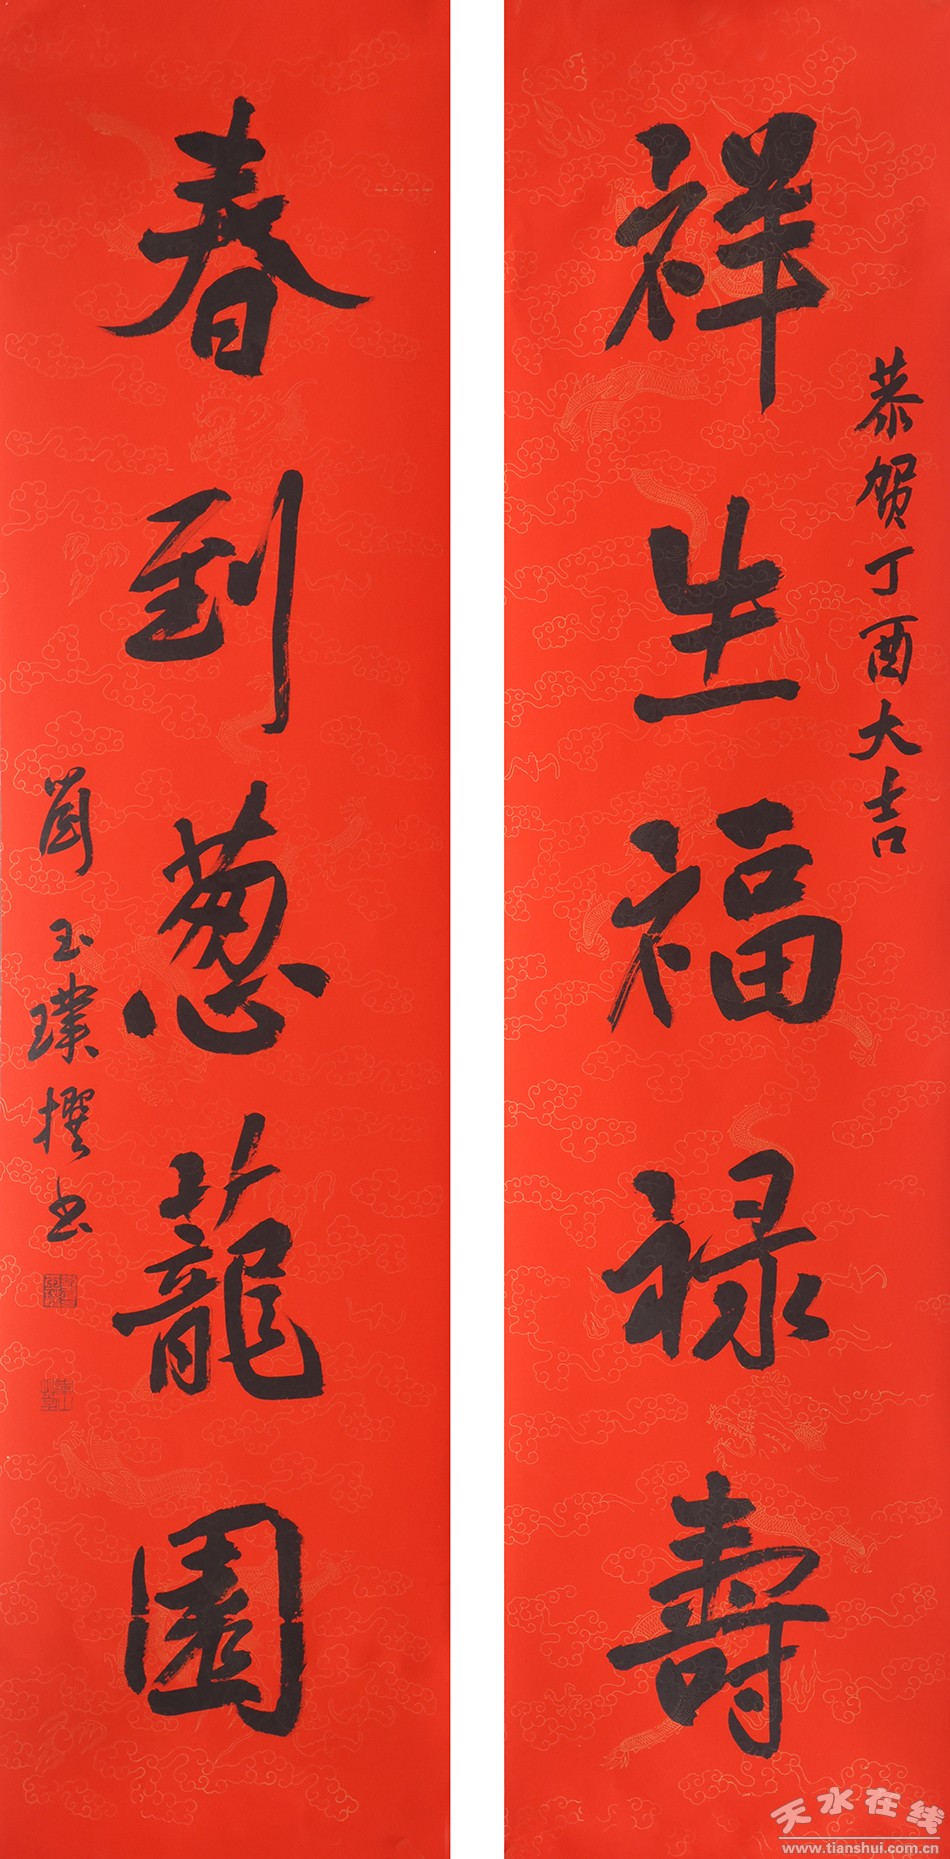 恭贺丁酉大吉
祥生福禄壽
春到葱蘢園
劉玉璞撰书
天水在线
www.tianshui.com.cn